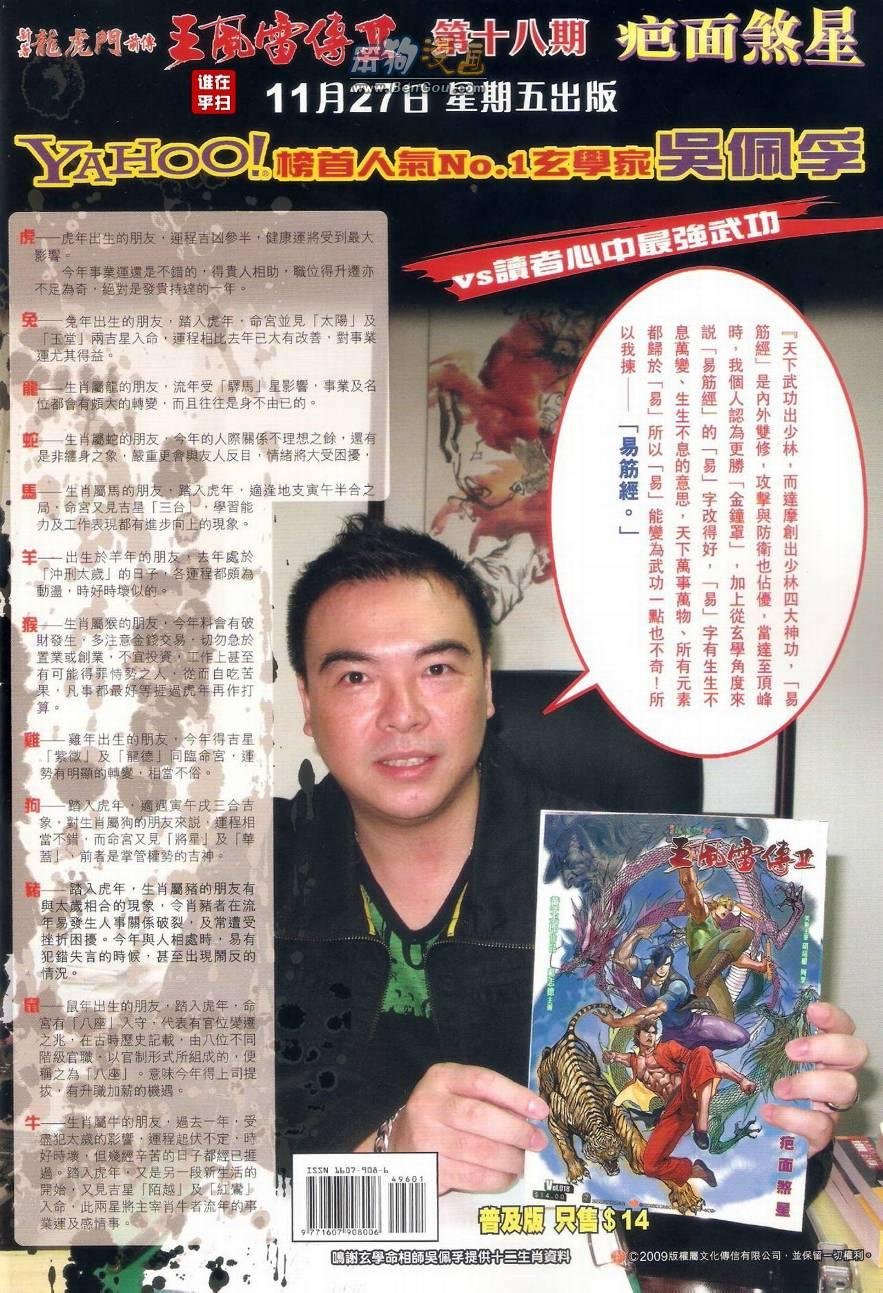 新著龍虎門前傳 王風雷傳II 第十八期 疤面煞星
笨狗漫画
www.BenGou.com
誰在
乎扫
11月27日 星期五出版
YAHOO! 榜首人氣No.1玄學家 吳佩孚
vs讀者心中最強武功
虎——虎年出生的朋友，運程吉凶參半，健康運將受到最大
影響。
今年事業運還是不錯的，得貴人相助，職位得升遷亦
不足為奇，絕對是發貴持達的一年。
兔——兔年出生的朋友，踏入虎年，命宮並見「太陽」及
「玉堂」兩吉星入命，運程相比去年已大有改善，對事業
運尤其得益。
龍——生肖屬龍的朋友，流年受「驛馬」星影響，事業及名
位都會有頗大的轉變，而且往往是身不由已的。
蛇——生肖屬蛇的朋友，今年的人際關係不理想之餘，還有
是非纏身之象，嚴重更會與友人反目，情緒將大受困擾，
馬——生肖屬馬的朋友，踏入虎年，適逢地支寅午半合之
局，命宮又見吉星「三台」，學習能
力及工作表現都有進步向上的現象。
羊——出生於羊年的朋友，去年處於
「沖刑太歲」的日子，各運程都頗為
動盪，時好時壞似的。
猴——生肖屬猴的朋友，今年料會有破
財發生，多注意金錢交易，切勿急於
置業或創業，不宜投資，工作上甚至
有可能得罪恃勢之人，從而自吃苦
果，凡事都最好等捱過虎年再作打
算。
雞——雞年出生的朋友，今年得吉星
「紫微」及「龍德」同臨命宮，運
勢有明顯的轉變，相當不俗。
狗——踏入虎年，適遇寅午戌三合吉
象，對生肖屬狗的朋友來說，運程相
當不錯，而命宮又見「將星」及「華
蓋」，前者是掌管權勢的吉神。
豬——踏入虎年，生肖屬豬的朋友有
與太歲相合的現象，令肖豬者在流
年易發生人事關係破裂，及常遭受
挫折困擾。今年與人相處時，易有
犯錯失言的時候，甚至出現鬧反的
情況。
鼠——鼠年出生的朋友，踏入虎年，命
宮有「八座」入守，代表有官位變遷
之兆，在古時歷史記載，由八位不同
階級官職，以官制形式所組成的，便
稱之為「八座」。意味今年得上司提
拔，有升職加薪的機遇。
牛——生肖屬牛的朋友，過去一年，受
盡犯太歲的影響，運程起伏不定，時
好時壞，但幾經辛苦的日子都經已捱
過。踏入虎年，又是另一段新生活的
開始，又見吉星「陌越」及「紅鸞」
入命，此兩星將主宰肖牛者流年的事
業運及感情事。
『天下武功出少林，而達摩創出少林四大神功，「易
筋經」是內外雙修，攻擊與防衛也佔優，當達至頂峰
時，我個人認為更勝「金鐘罩」，加上從玄學角度來
說「易筋經」的「易」字改得好，「易」字有生生不
息萬變、生生不息的意思，天下萬事萬物、所有元素
都歸於「易」所以「易」能變為武功一點也不奇！所
以我揀——「易筋經。」
王風雷傳II
疤面煞星
Vol.018
$14.00
ISSN 1607-908-6
49601
9 771607 908006
普及版 只售$14
鳴謝玄學命相師吳佩孚提供十二生肖資料
©2009版權屬文化傳信有限公司，並保留一切權利。